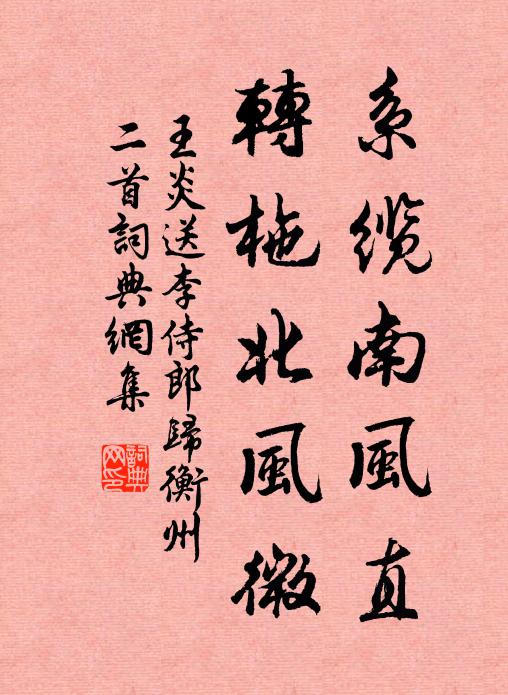 系缆南風直
轉柂北風微
王炎送李侍郎歸衡州
二首詞典網集
詞典
网印